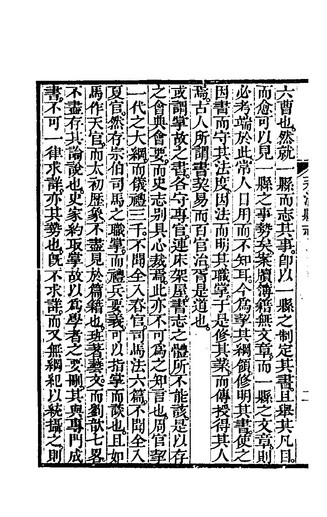 六曹也然就一縣而志其事即以一縣之制定其書且舉其凡目
而愈可以見一縣之事勢矣案牘簿籍無文章而一縣之文章則
必考端於此常人日用而不知耳今為挈其綱領修明其書使之
因書而守其法度因法而明其職掌於是修其業而傳授得其人
焉古人所謂書契易而百官治胥是道也
或謂掌故之書各守專官連床架屋書志之體所不能該是以存
之會典會要而史志別具心裁焉此亦不可為之知言也周官挈
一代之大綱而儀禮三千不聞全入春官司馬法六篇不聞全入
夏官然存宗伯司馬之職掌而禮兵要義可以指掌而談也且如
馬作天官而太初歷象不盡見於篇籍也班著藝文而劉歆七畧
不盡存其論說也史家約取掌故以為學者之要刪其與專門成
書不可一律求詳亦其勢也既不求詳而又無綱紀以統攝之則
永清縣志